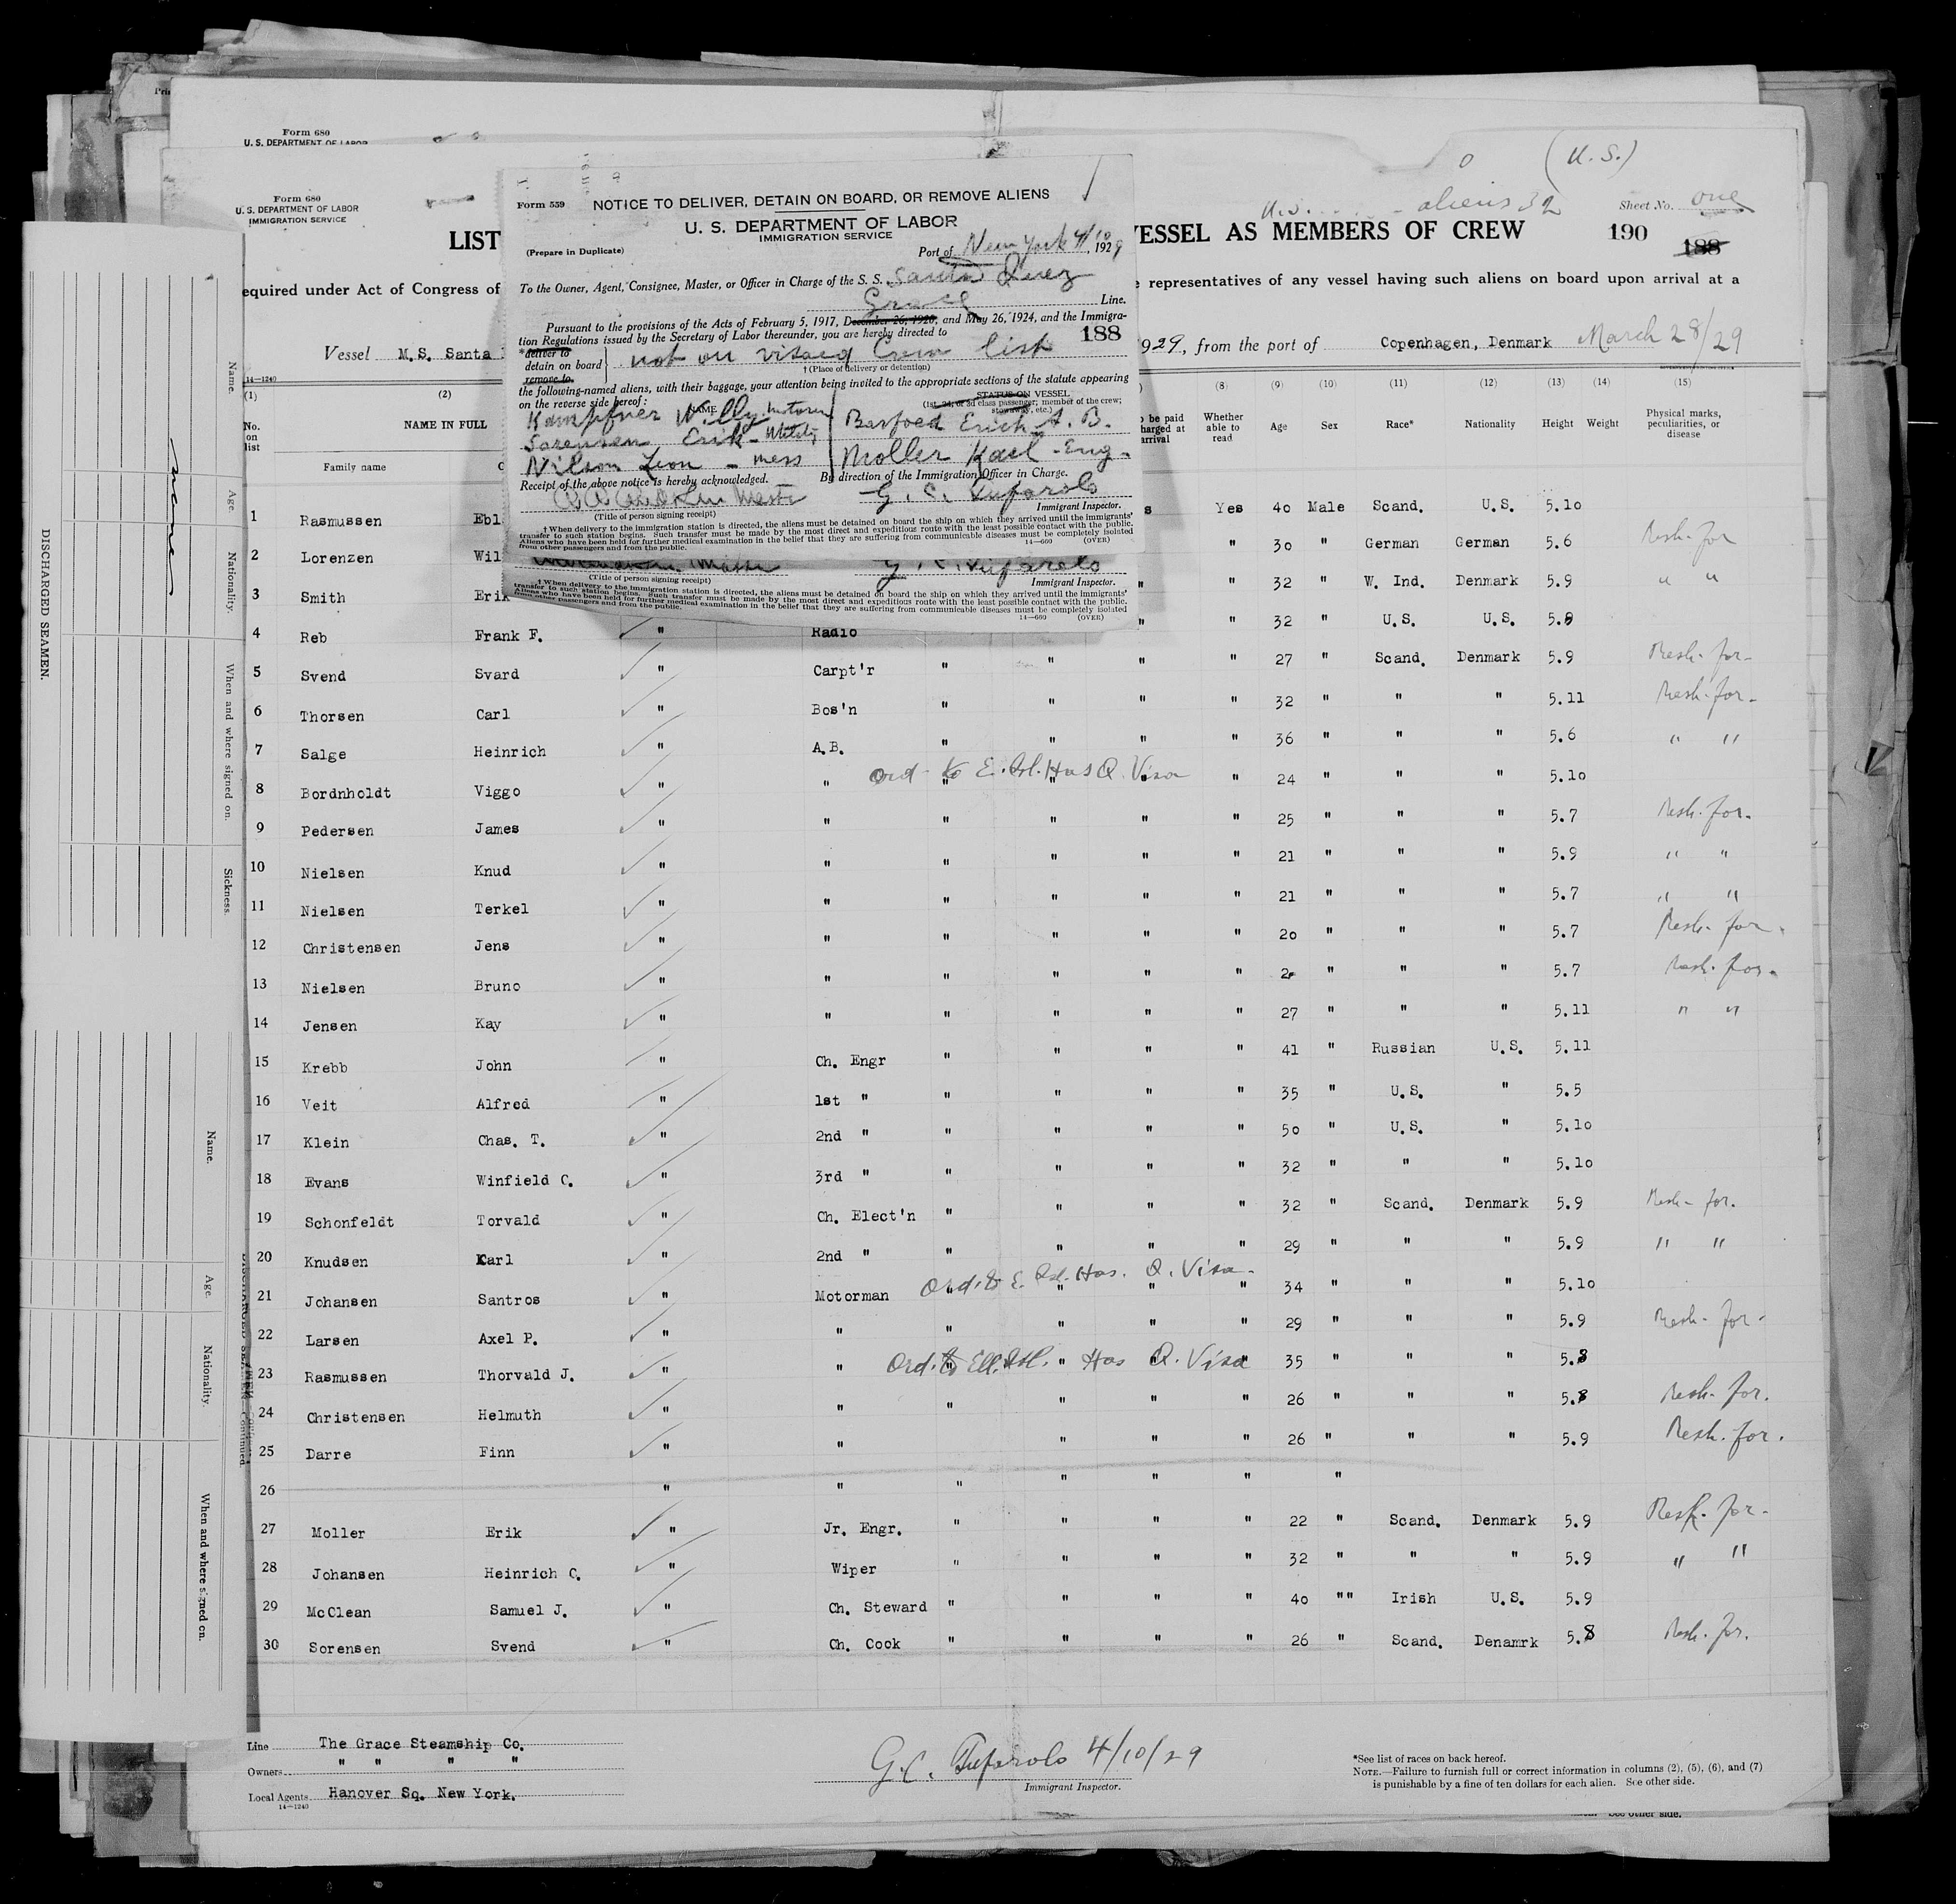 Form 680
U. S. DEPARTMENT OF LABOR
Form 680
U. S. DEPARTMENT OF LABOR
IMMIGRATION SERVICE
(U. S.)
aliens 32
Sheet No. one
LIST
VESSEL AS MEMBERS OF CREW
190
188
equired under Act of Congress of
representatives of any vessel having such aliens on board upon arrival at a
Vessel M.S. Santa
929, from the port of Copenhagen, Denmark March 28/29
14—1240
Form 559
NOTICE TO DELIVER, DETAIN ON BOARD, OR REMOVE ALIENS
U. S. DEPARTMENT OF LABOR
IMMIGRATION SERVICE
(Prepare in Duplicate)
Port of New York 4/10, 1929
To the Owner, Agent, Consignee, Master, or Officer in Charge of the S. S. Santa Inez
Grace Line.
Pursuant to the provisions of the Acts of February 5, 1917, December 26, 1920, and May 26, 1924, and the Immigra-
tion Regulations issued by the Secretary of Labor thereunder, you are hereby directed to 188
*deliver to
detain on board
remove to
not on visaed Crew list
† (Place of delivery or detention)
the following-named aliens, with their baggage, your attention being invited to the appropriate sections of the statute appearing
on the reverse side hereof:
NAME
STATUS ON VESSEL
(1st, 2d, or 3d class passenger; member of the crew;
stowaway, etc.)
Kampfner Willy
Sorensen Erik
Nilson Leon - mess
Erich A. B.
Moller Karl - Eng.
Receipt of the above notice is hereby acknowledged.
By direction of the Immigration Officer in Charge.
G. C. Tufarolo
(Title of person signing receipt)
Immigrant Inspector.
† When delivery to the immigration station is directed, the aliens must be detained on board the ship on which they arrived until the immigrants'
transfer to such station begins. Such transfer must be made by the most direct and expeditious route with the least possible contact with the public.
Aliens who have been held for further medical examination in the belief that they are suffering from communicable diseases must be completely isolated
from other passengers and from the public.
14—660 (OVER)
G. C. Tufarolo
(Title of person signing receipt)
Immigrant Inspector.
† When delivery to the immigration station is directed, the aliens must be detained on board the ship on which they arrived until the immigrants'
transfer to such station begins. Such transfer must be made by the most direct and expeditious route with the least possible contact with the public.
Aliens who have been held for further medical examination in the belief that they are suffering from communicable diseases must be completely isolated
from other passengers and from the public.
14—660 (OVER)
(1) (2) (8) (9) (10) (11) (12) (13) (14) (15)
No. on list
NAME IN FULL
Family name
be paid
harged at
arrival
Whether able to read
Age
Sex
Race*
Nationality
Height
Weight
Physical marks, peculiarities, or disease
1 Rasmussen Ebl s Yes 40 Male Scand. U.S. 5.10
2 Lorenzen Wil " 30 " German German 5.6 Resh. for
3 Smith Erik " " 32 " W. Ind. Denmark 5.9 " "
4 Reb Frank F. " Radio " " 32 " U.S. U.S. 5.8
5 Svend Svard " Carpt'r " " " " 27 " Scand. Denmark 5.9 Resh. for-
6 Thorsen Carl " Bos'n " " " " 32 " " " 5.11 Resh. for-
7 Salge Heinrich " A.B. " " " " 36 " " " 5.6 " "
8 Bordnholdt Viggo " " Ord to E. Isl. Has Q. Visa " 24 " " " 5.10
9 Pedersen James " " " " " " 25 " " " 5.7 Resh. for-
10 Nielsen Knud " " " " " " 21 " " " 5.9 " "
11 Nielsen Terkel " " " " " " 21 " " " 5.7 " "
12 Christensen Jens " " " " " " 20 " " " 5.7 Resh. for.
13 Nielsen Bruno " " " " " " " " " 5.7 Resh. for-
14 Jensen Kay " " " " " " 27 " " " 5.11 " "
15 Krebb John " Ch. Engr " " " " 41 " Russian U.S. 5.11
16 Veit Alfred " 1st " " " " " 35 " U.S. " 5.5
17 Klein Chas. T. " 2nd " " " " " 50 " U.S. " 5.10
18 Evans Winfield C. " 3rd " " " " " 32 " " " 5.10
19 Schonfeldt Torvald " Ch. Elect'n " " " " 32 " Scand. Denmark 5.9 Resh. for.
20 Knudsen Karl " 2nd " " " " " 29 " " " 5.9 " "
21 Johansen Santros " Motorman Ord. to E. Isl. Has. Q. Visa - " 34 " " " 5.10
22 Larsen Axel P. " " " " " " 29 " " " 5.9 Resh. for-
23 Rasmussen Thorvald J. " " Ord. to Ell. Isl. Has Q. Visa 35 " " " 5.8
24 Christensen Helmuth " " " " " " 26 " " " 5.8 Resh. for.
25 Darre Finn " " " " " 26 " " " 5.9 Resh. for.
26 " " " " " " "
27 Moller Erik " Jr. Engr. " " " " 22 " Scand. Denmark 5.9 Resh. for-
28 Johansen Heinrich C. " Wiper " " " " 32 " " " 5.9 " "
29 McClean Samuel J. " Ch. Steward " " " " 40 "" Irish U.S. 5.9
30 Sorensen Svend " Ch. Cock " " " " 26 " Scand. Denamrk 5.8 Resh. for.
Line The Grace Steamship Co.
Owners " " " "
Local Agents Hanover Sq. New York.
14—1240
G. C. Tufarolo 4/10/29
Immigrant Inspector.
*See list of races on back hereof.
NOTE.—Failure to furnish full or correct information in columns (2), (5), (6), and (7)
is punishable by a fine of ten dollars for each alien. See other side.
See other side.
DISCHARGED SEAMEN.
Name.
Age.
Nationality.
When and where signed on.
Sickness.
none
Name.
Age.
Nationality.
When and where signed on.